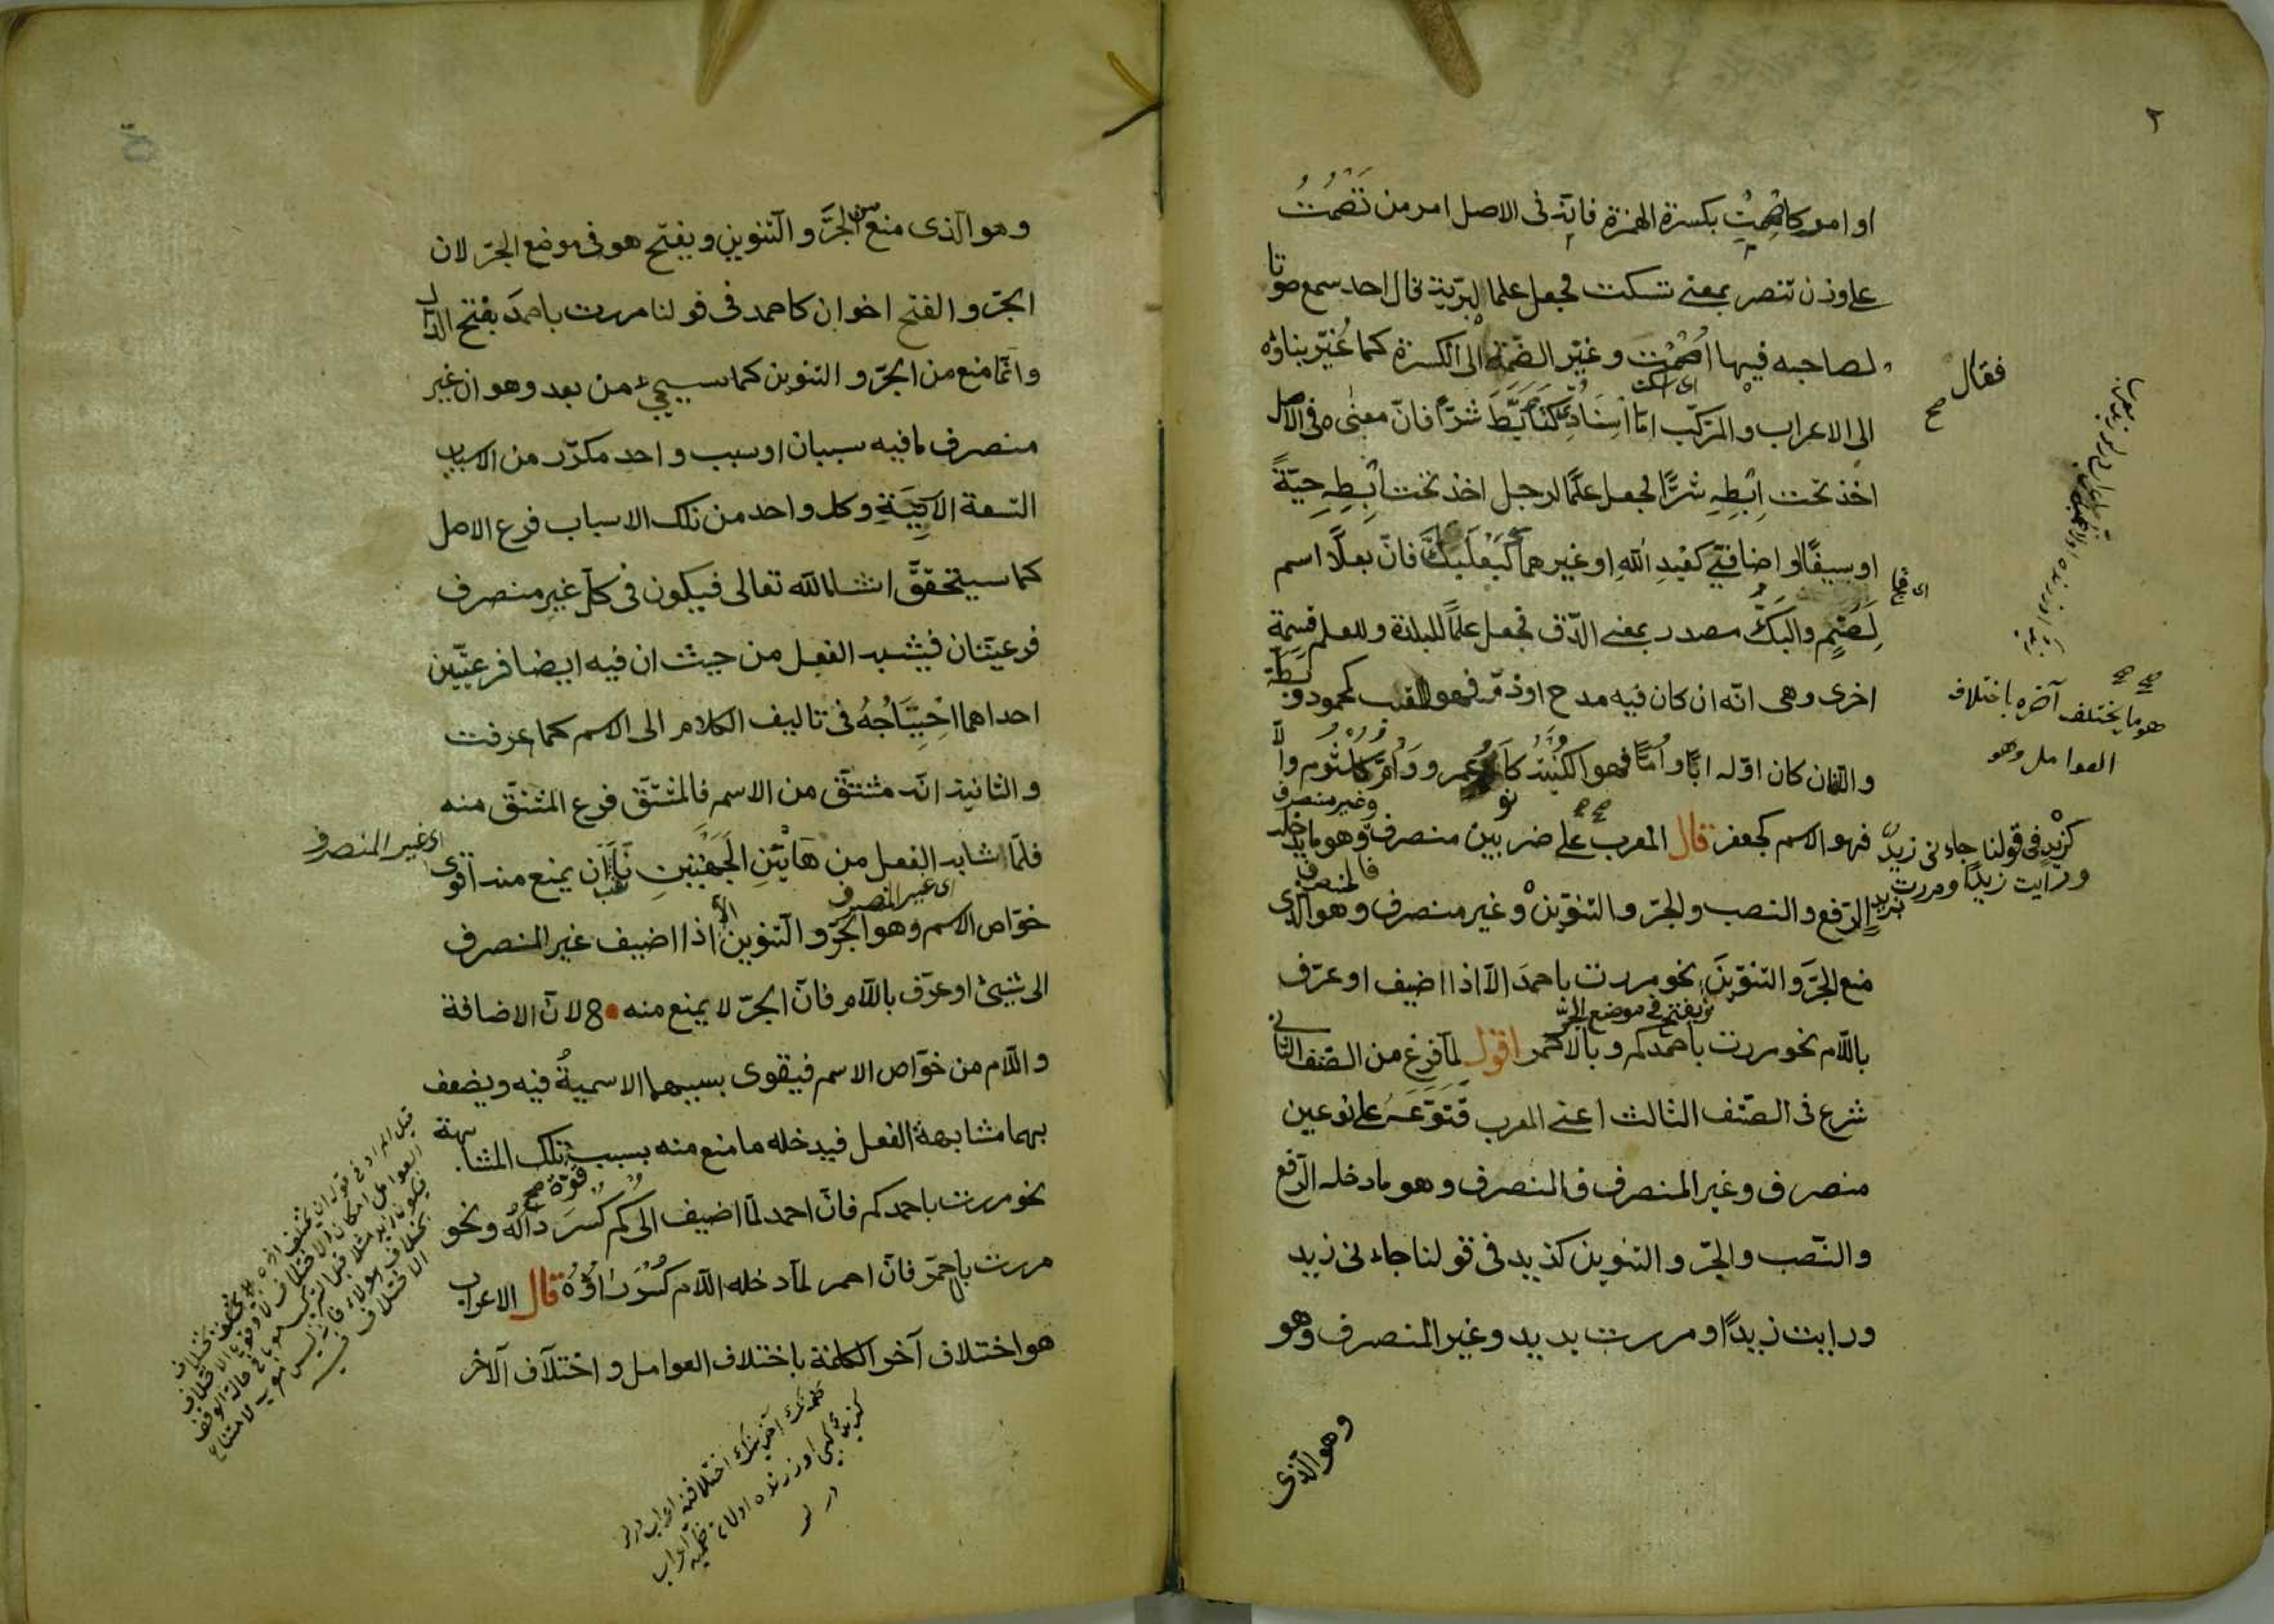 او امر كاصمت بكسرة الهمزة فانه فى الاصل امر من تصمت
على وزن تنصر بمعنى تسكت فجعل علما لبرّية قال احد سمع صوتا
لصاحبه فيها اصمت وغيّر الضمّة الى الكسرة كما غُيّر بناؤه
اى اسكت
فقال صح
الى الاعراب والمركّب امّا اسنادىّ كتَأبّطَ شرّاً فانّ معنىٰه فى الاصل
اخذ تحت اِبْطِهِ شرًّا فجعل علَمًا لرجل اخذ تحت اِبْطِهِ حيّةً
او سيفًا او اضافىّ كعبْدِ اللّهِ او غيرهما كبَعْلَبَكَّ فانّ بعلًا اسم
لِصَنَمٍ والبَكُّ مصدر بمعنى الدّق فجعل علمًا للبلدة وللعلم قسمة
اخرى وهى انّه ان كان فيه مدح او ذمّ فهو اللقب كمحمود وبطّة
هو ما يختلف آخره باختلاف
العوامل وهو
والّا فان كان اوّله ابًا او اُمًّا فهو الكُنْيَة كابو عمرو واُمّ كُلْثُوم والّا
فهو الاسم كجعفر قال المعرب على ضربين منصرف وهو ما يدخله
وغير منصرف
كزيْدٍ فى قولنا جاءنى زيدٌ
ورأيت زيدًا ومررت بزيدٍ
فالمنصرف
الرّفع والنصب والجرّ والتنوين وغير منصرف وهو الّذى
منع الجرَّ والتنوينَ نحو مررت باحمدَ الّا اذا اضيف او عرّف
ويفتح فى موضع الجرّ
باللّام نحو مررت باحمدكم وبالاحمر اقول لمّا فرغ من الصّنف الثانى
شرع فى الصّنف الثالث اعنى المعرب فتَوّعَه على نوعين
منصرف وغير المنصرف فالمنصرف وهو ما دخله الرّفع
والنّصب والجرّ والتنوين كزيد فى قولنا جاءنى زيد
ورايت زيدًا ومررت بزيد وغير المنصرف وهو
وهو الّذى
وهو الّذى منع من الجرَّ والتنوين ويفتح هو فى موضع الجرّ لان
الجرّ والفتح اخوان كاحمد فى قولنا مررت باحمدَ بفتح الدال
وانّما منع من الجرّ والتنوين كما سيجىء من بعد وهو ان غير
منصرف ما فيه سببان او سبب واحد مكرّر من الاسباب
التسعة الآتِيَةِ وكل واحد من تلك الاسباب فرع الاصل
كما سيتحقّق انشاء اللّه تعالى فيكون فى كلّ غيرِ منصرف
فرعيّتان فيشبه الفعل من حيث ان فيه ايضا فرعيّتين
احداهما احْتِيَاجُهُ فى تاليف الكلام الى الاسم كما عرفت
والثانية انّه مشتقّ من الاسم فالمشتقّ فرع المشتقّ منه
فلمّا شابه الفعل من هَاتَيْنِ الجهَتَيْنِ نَاسَبَ ان يمنع منه اقوى
اى غير المنصرف
اى غير المنصرف
خوّاص الاسم وهو الجرّ والتنوين الّا اذا اضيف غير المنصرف
الى شيئ او عرّف باللّام فانّ الجرّ لا يمنع منه لانّ الاضافة
واللّام من خوّاص الاسم فيقوى بسببهما الاسميةُ فيه ويضعف
بهما مشابهة الفعل فيدخله ما منع منه بسبب تلك المشابهة
قوّة صح
نحو مررت باحمدكم فانّ احمد لمّا اضيف الى كم كُسِرَ دالُهُ ونحو
مررت بالاحمر فانّ احمر لمّا دخله اللّام كُسِرَ رَاؤُهُ قال الاعراب
هو اختلاف آخر الكلمة باختلاف العوامل واختلاف الآخر